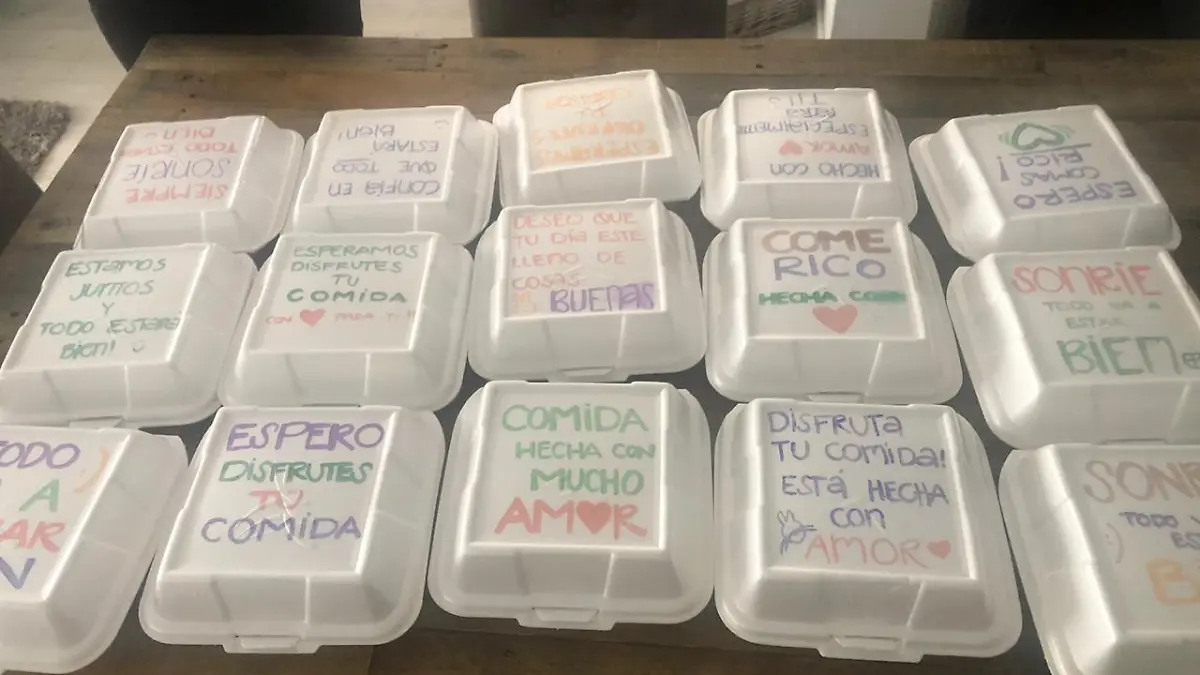 SIEMPRE
SONRIE
TODO ESTARA
BIEN
CONFÍA EN
QUE TODO
ESTARA
BIEN!
ESPERAMOS
DISFRUTES
TU
HECHO CON
AMOR ♥
ESPECIALMENTE
PARA
TI
ESPERO
COMAS
RICO!
ESTAMOS
JUNTOS
Y
TODO ESTARA
BIEN!
ESPERAMOS
DISFRUTES
TU
COMIDA
CON ♥ PARA TI
DESEO QUE
TU DÍA ESTE
LLENO DE
COSAS
BUENAS
COME
RICO
HECHA CON
♥
SONRIE
TODO VA A
ESTAR
BIEN
TODO
A
AR
N
ESPERO
DISFRUTES
TU
COMIDA
COMIDA
HECHA CON
MUCHO
AM♥R
DISFRUTA
TU COMIDA!
ESTÁ HECHA
CON
AMOR ♥
SONR
TODO
ES
B